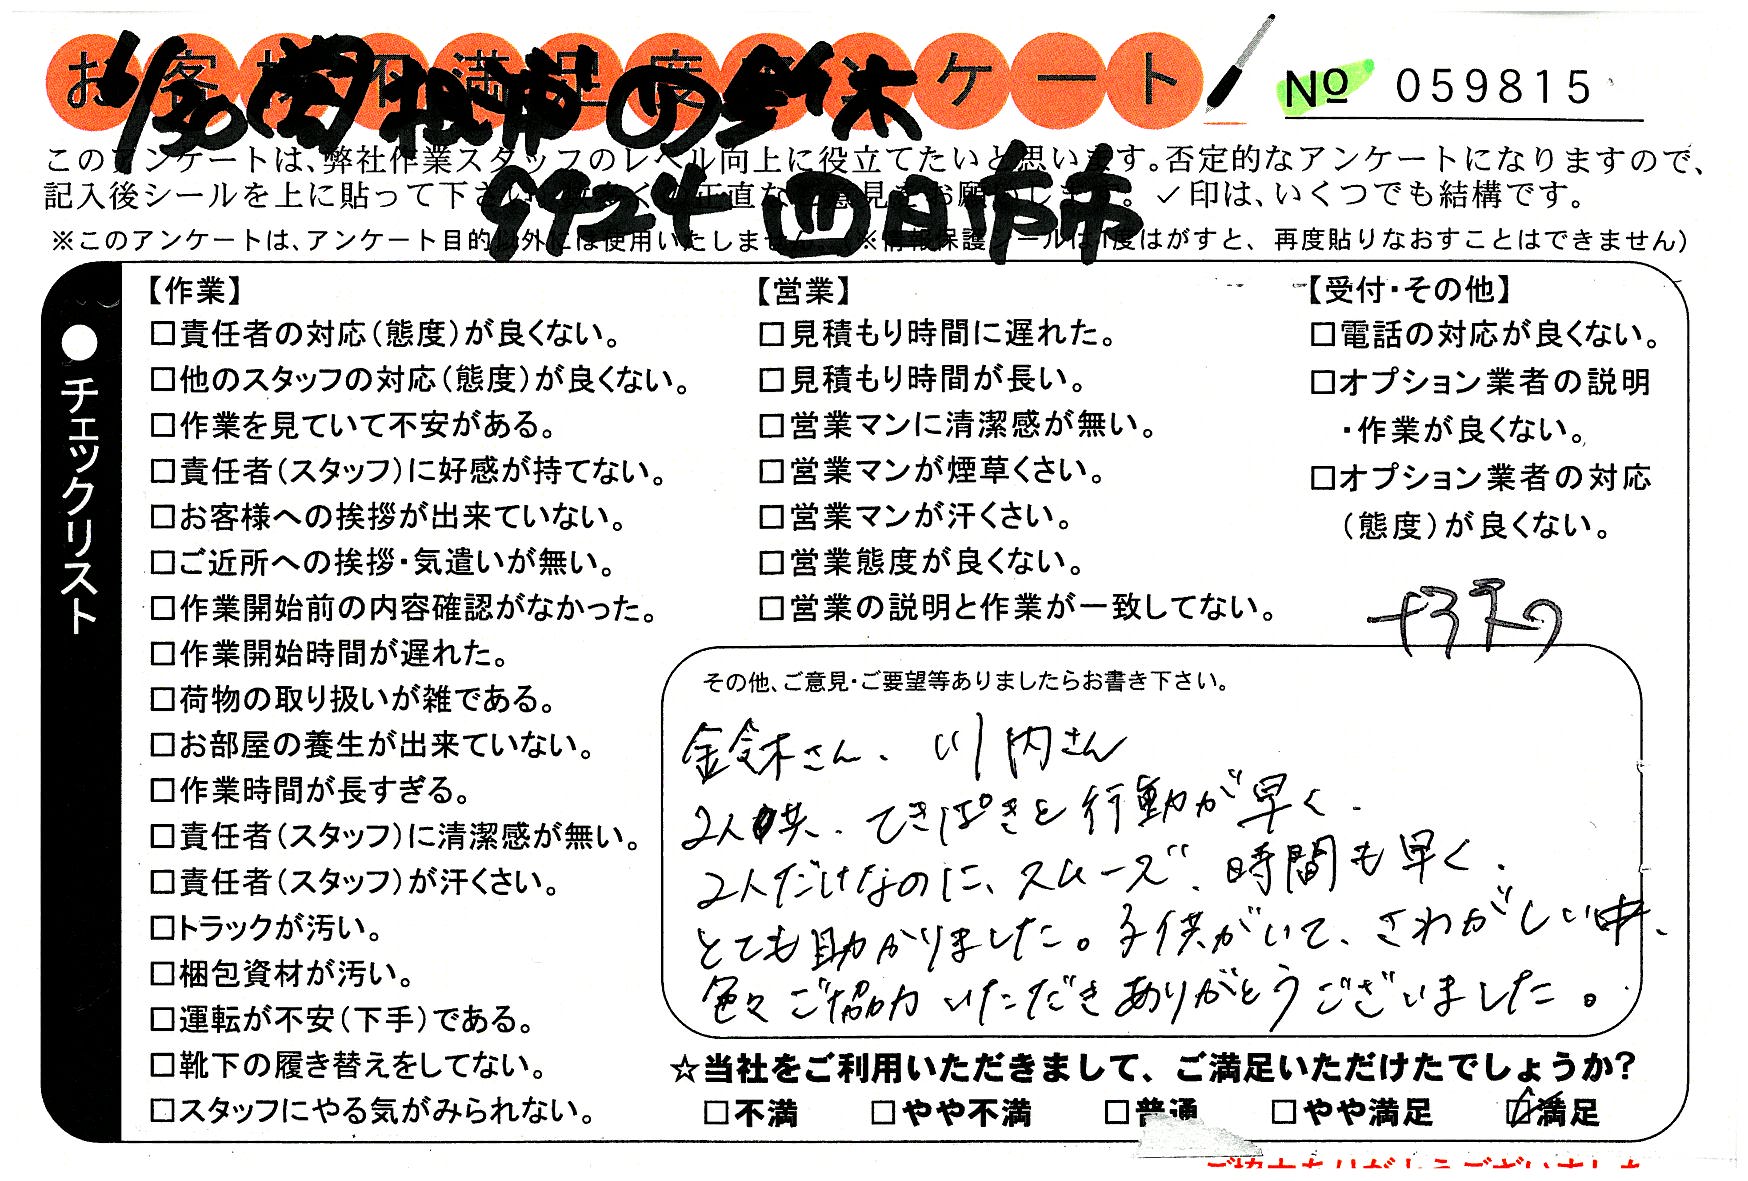 お客様不満足度アンケート
№ 059815
このアンケートは、弊社作業スタッフのレベル向上に役立てたいと思います。否定的なアンケートになりますので、
記入後シールを上に貼って下さい。正直なご意見をお願いします。✓印は、いくつでも結構です。
※このアンケートは、アンケート目的以外には使用いたしません。(※情報保護シールは1度はがすと、再度貼りなおすことはできません)
四日市市
●チェックリスト
【作業】
□責任者の対応(態度)が良くない。
□他のスタッフの対応(態度)が良くない。
□作業を見ていて不安がある。
□責任者(スタッフ)に好感が持てない。
□お客様への挨拶が出来ていない。
□ご近所への挨拶・気遣いが無い。
□作業開始前の内容確認がなかった。
□作業開始時間が遅れた。
□荷物の取り扱いが雑である。
□お部屋の養生が出来ていない。
□作業時間が長すぎる。
□責任者(スタッフ)に清潔感が無い。
□責任者(スタッフ)が汗くさい。
□トラックが汚い。
□梱包資材が汚い。
□運転が不安(下手)である。
□靴下の履き替えをしてない。
□スタッフにやる気がみられない。
【営業】
□見積もり時間に遅れた。
□見積もり時間が長い。
□営業マンに清潔感が無い。
□営業マンが煙草くさい。
□営業マンが汗くさい。
□営業態度が良くない。
□営業の説明と作業が一致してない。
【受付・その他】
□電話の対応が良くない。
□オプション業者の説明
・作業が良くない。
□オプション業者の対応
(態度)が良くない。
その他、ご意見・ご要望等ありましたらお書き下さい。
鈴木さん、川内さん
2人共、てきぱきと行動が早く、
2人だけなのに、スムーズ、時間も早く、
とても助かりました。子供がいて、さわがしい中、
色々ご協力いただきありがとうございました。
☆当社をご利用いただきまして、ご満足いただけたでしょうか?
□不満 □やや不満 □普通 □やや満足 ☑満足
ご協力ありがとうございました